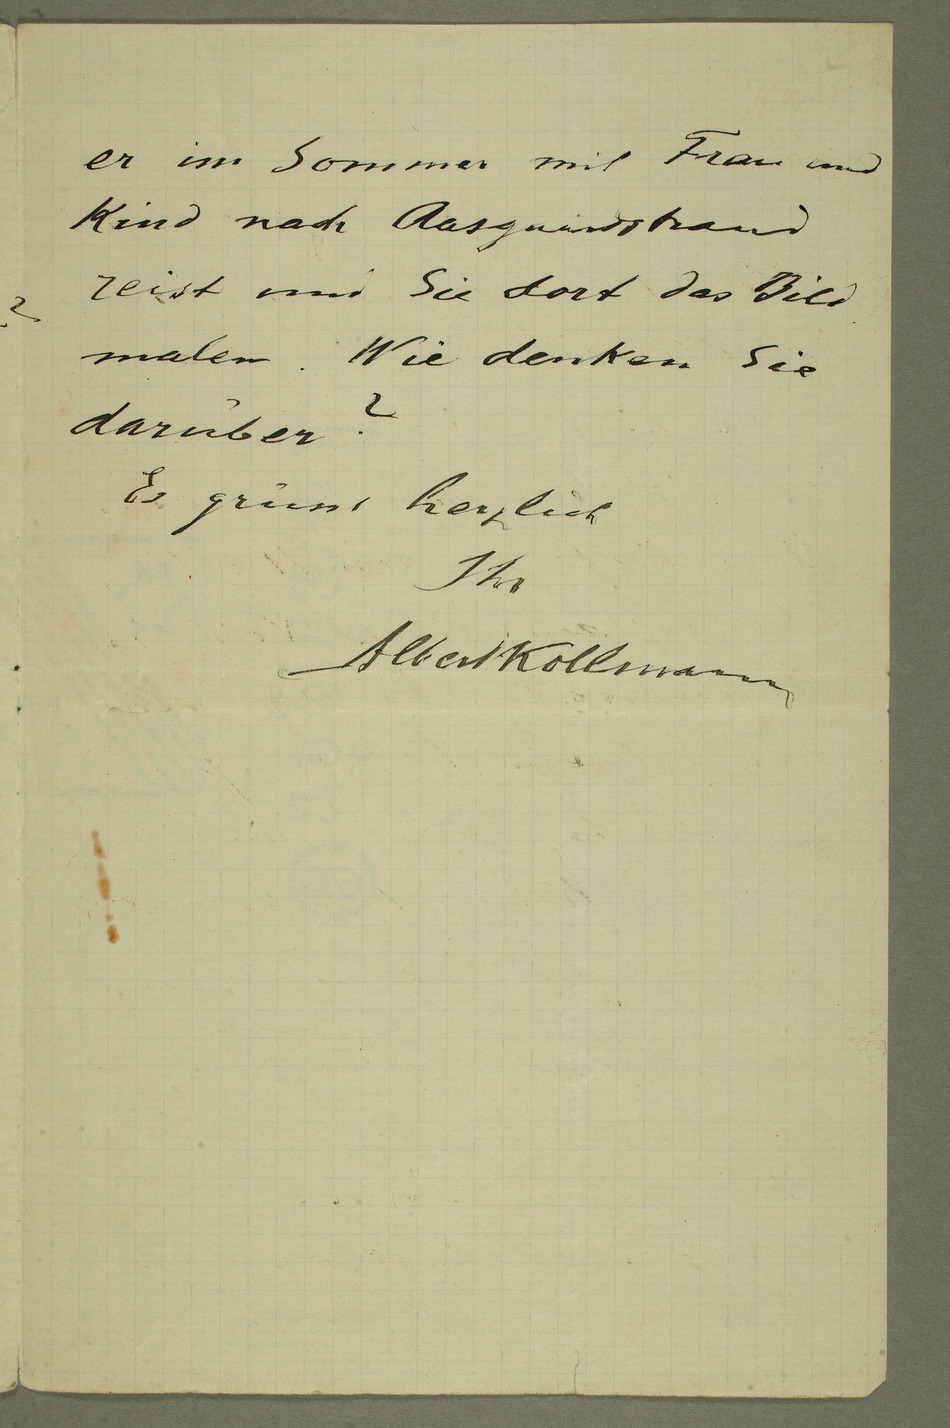 er im Sommer mit Frau und
Kind nach Aasgaardstrand
reist und Sie dort das Bild
malen. Wie denken Sie
darüber?
Es grüsst herzlich
Ihr
Albert Kollmann